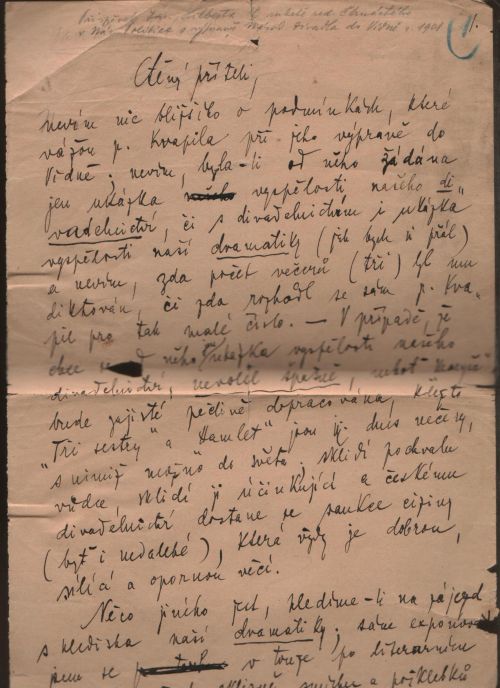 1.
v Nár. Politice o výpravě Národ. divadla do Vídně r. 1901
Ctěný příteli,
Nevím nic bližšího o podmínkách, které
vážou p. Kvapila při jeho výpravě do
Vídně; nevím, byla-li od něho žádána
jen ukázka vyspělosti našeho di-
vadelnictví, či s divadelnictvím i ukázka
vyspělosti naší dramatiky (jak bych si přál)
a nevím, zda počet večerů (tři) byl mu
diktován, či zda rozhodl se sám p. Kva-
pil pro tak malé číslo. — V případě, že
chce se od něho ukázka vyspělosti našeho
divadelnictví, nevolil špatně, neboť
bude zajisté pečlivě dopracována,
"Tři sestry" a "Hamlet" jsou již dnes večery,
s nimiž možno do světa; sklidí pochvalu
vůdce, sklidí ji účinkující a českému
divadelnictví dostane se sankce ciziny
(byť i nedaleké), která vždy je dobrou,
sílící a opornou věcí.
Něco jiného jest, hledíme-li na zájezd
s hlediska naší dramatiky; sám exponoval
jsem se v touze po literárním